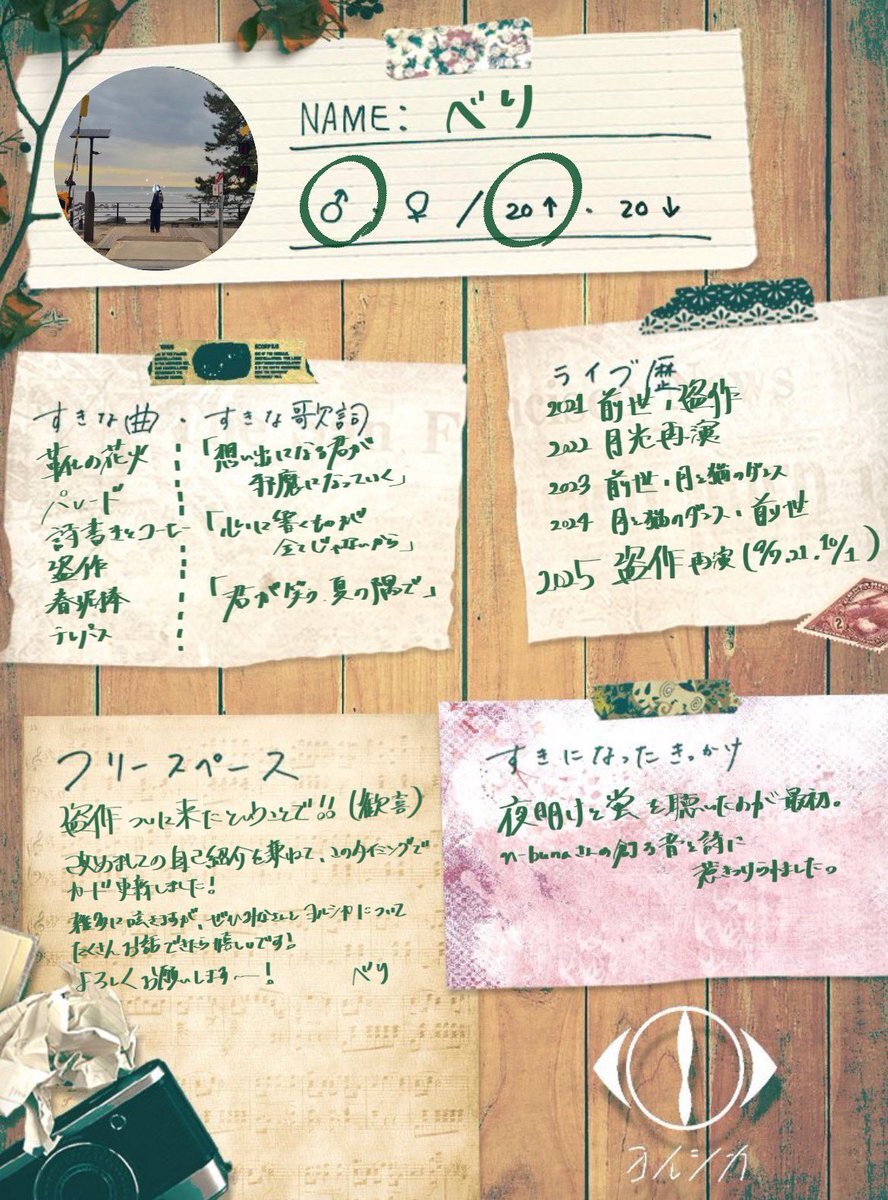 NAME: べり
♂・♀ / 20↑・20↓
すきな曲・すきな歌詞
靴の花火
パレード
詩書きとコーヒー
盗作
春泥棒
テレパス
「想い出になる君が
邪魔になっていく」
「心に響くものが
全てじゃないから」
「君がダンス、夏の隅で」
ライブ歴
2021 前世・盗作
2022 月光再演
2023 前世・月と猫のダンス
2024 月と猫のダンス・前世
2025 盗作再演(9/7.21.10/1)
フリースペース
盗作ついに来たということで!!(歓喜)
改めましての自己紹介を兼ねて、このタイミングで
カード更新しました!
雑多に呟きますが、ぜひみなさんとヨルシカについて
たくさんお話できたら嬉しいです!
よろしくお願いしますー! べり
すきになったきっかけ
夜明けと蛍を聴いたのが最初。
n-bunaさんの創る音と詩に
惹きつけられました。
ヨルシカ